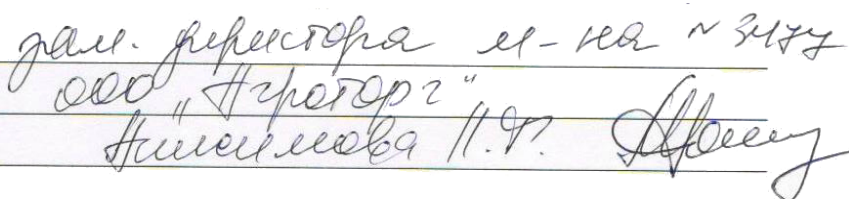 зам. директора м-на № 3477
ООО "Агроторг"
Анисимова Н.Ф.